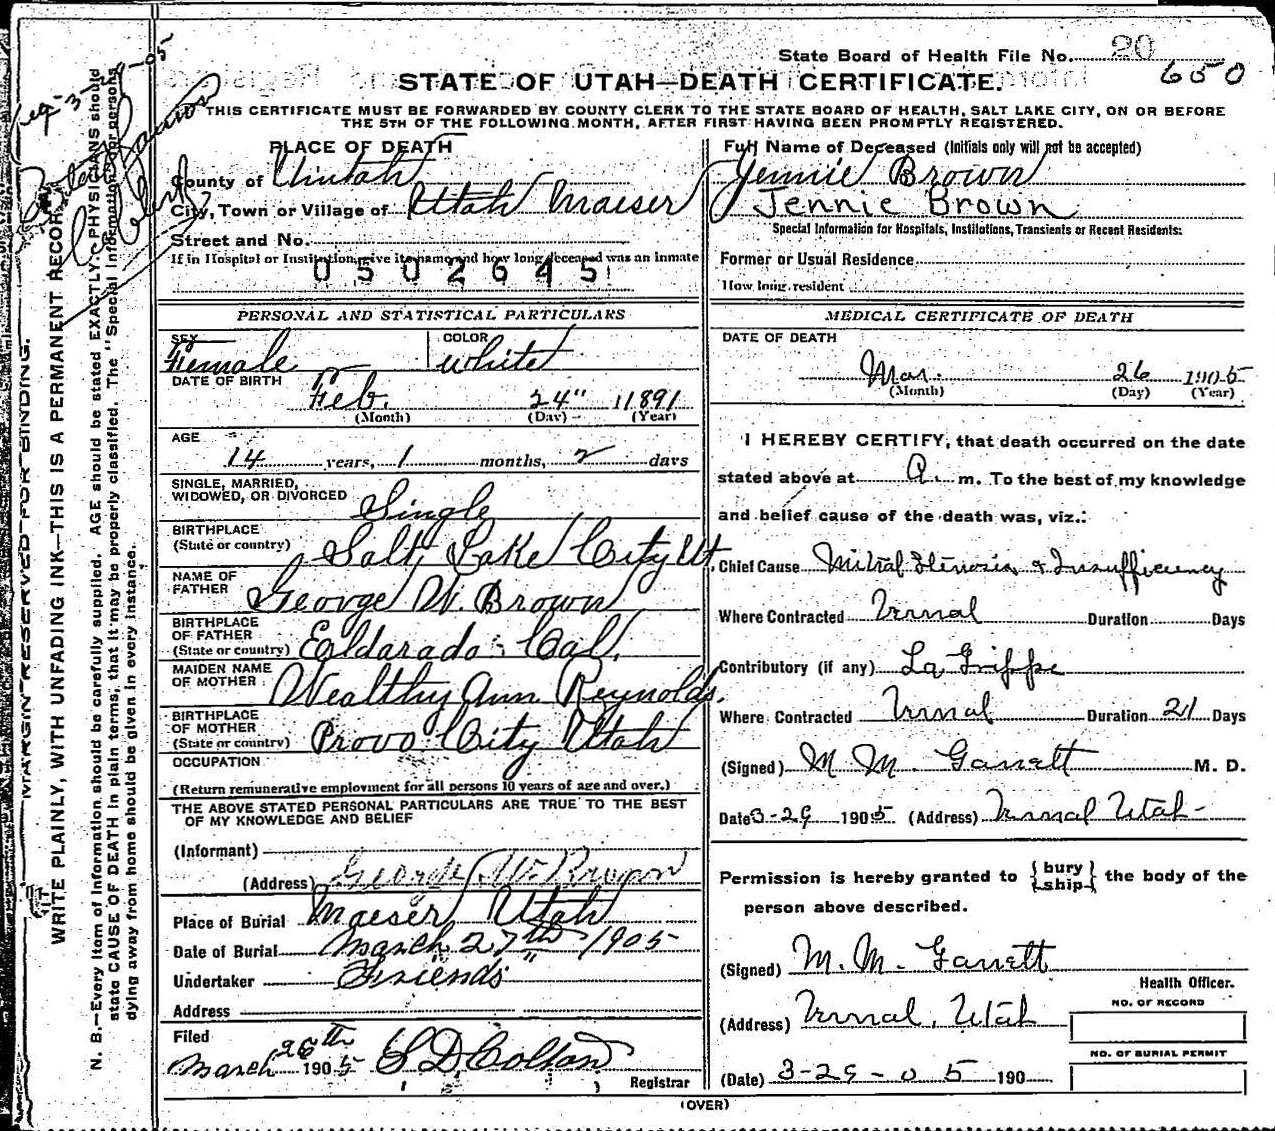 State Board of Health File No. 20
650
STATE OF UTAH—DEATH CERTIFICATE.
THIS CERTIFICATE MUST BE FORWARDED BY COUNTY CLERK TO THE STATE BOARD OF HEALTH, SALT LAKE CITY, ON OR BEFORE
THE 5TH OF THE FOLLOWING MONTH, AFTER FIRST HAVING BEEN PROMPTLY REGISTERED.
PLACE OF DEATH
County of Uintah
City, Town or Village of Utah Maeser
Street and No.
If in Hospital or Institution, give its name and how long deceased was an inmate
0502645
PERSONAL AND STATISTICAL PARTICULARS
SEX Female COLOR white
DATE OF BIRTH Feb. 24" 1891
(Month) (Day) (Year)
AGE
14 years, 1 months, 2 days
SINGLE, MARRIED,
WIDOWED, OR DIVORCED Single
BIRTHPLACE
(State or country) Salt Lake City Ut.
NAME OF
FATHER George W. Brown
BIRTHPLACE
OF FATHER
(State or country) Eldarado Cal.
MAIDEN NAME
OF MOTHER Wealthy Ann Reynolds.
BIRTHPLACE
OF MOTHER
(State or country) Provo City Utah
OCCUPATION
(Return remunerative employment for all persons 10 years of age and over.)
THE ABOVE STATED PERSONAL PARTICULARS ARE TRUE TO THE BEST
OF MY KNOWLEDGE AND BELIEF
(Informant)
(Address) George W. Brown
Place of Burial Maeser Utah
Date of Burial March 27th 1905
Undertaker Friends
Address
Filed
March 28th 1905 S D Colton
Registrar
Full Name of Deceased (Initials only will not be accepted)
Jennie Brown
Jennie Brown
Special Information for Hospitals, Institutions, Transients or Recent Residents:
Former or Usual Residence
How long resident
MEDICAL CERTIFICATE OF DEATH
DATE OF DEATH
Mar. 26 1905
(Month) (Day) (Year)
I HEREBY CERTIFY, that death occurred on the date
stated above at A. m. To the best of my knowledge
and belief cause of the death was, viz.:
Chief Cause Mitral Stenosis & Insufficiency
Where Contracted Vernal Duration Days
Contributory (if any) La Grippe
Where Contracted Vernal Duration 21 Days
(Signed) M. M. Garrett M. D.
Date 3-29 1905 (Address) Vernal Utah-
Permission is hereby granted to {bury ship} the body of the
person above described.
(Signed) M. M. Garrett
Health Officer.
(Address) Vernal, Utah
NO. OF RECORD
NO. OF BURIAL PERMIT
(Date) 3-29-05 190
(OVER)
MARGIN RESERVED FOR BINDING.
WRITE PLAINLY, WITH UNFADING INK—THIS IS A PERMANENT RECORD.
N. B.—Every item of information should be carefully supplied. AGE should be stated EXACTLY. PHYSICIANS should
state CAUSE OF DEATH in plain terms, that it may be properly classified. The "Special Information" for persons
dying away from home should be given in every instance.